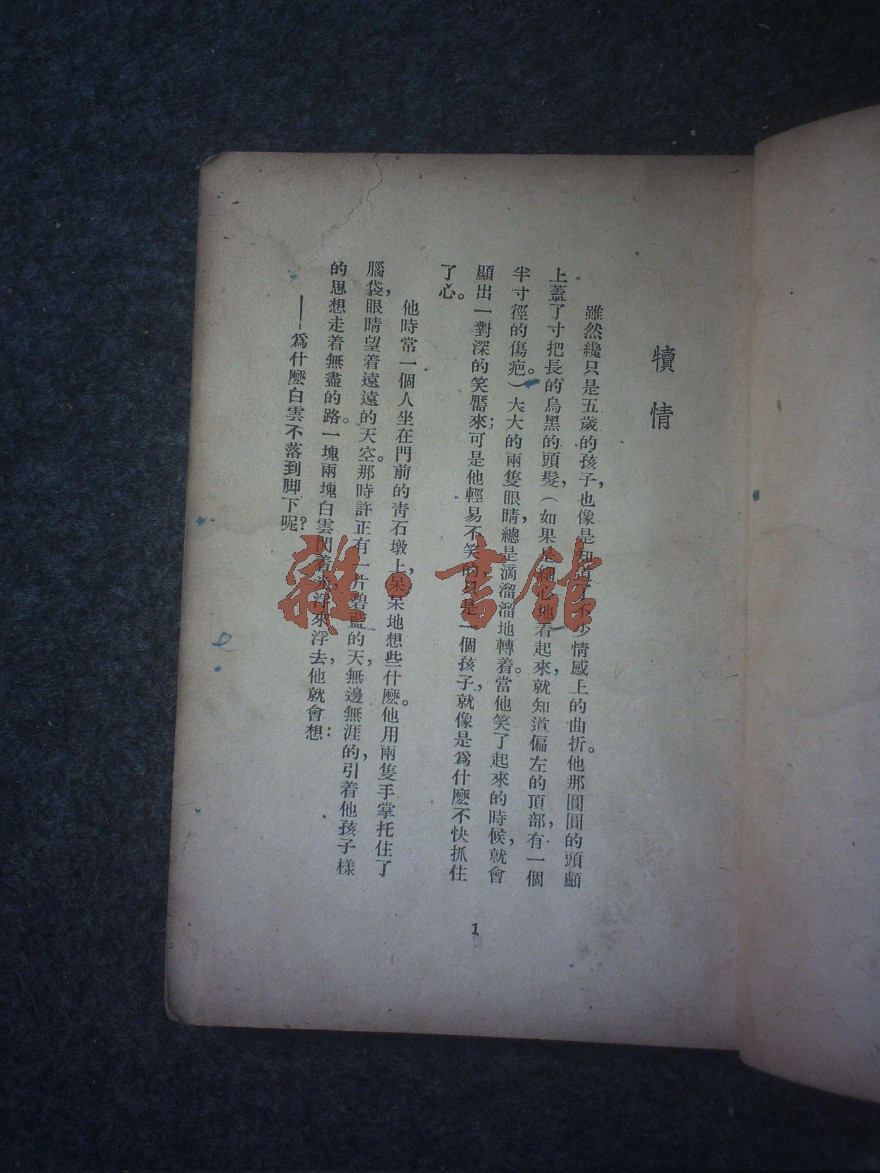 犢情
雖然纔只是五歲的孩子，也像是知道了不少情感上的曲折。他那圓圓的頭顱
上蓋了寸把長的烏黑的頭髮，（如果是細心地看起來，就知道偏左的頂部有一個
半寸徑的傷疤。）大大的兩隻眼睛，總是滴溜溜地轉着。當他笑了起來的時候，就會
顯出一對深的笑靨來；可是他輕易不笑的，只是一個孩子，就像是爲什麽不快抓住
了心。
他時常一個人坐在門前的青石墩上，呆呆地想些什麽。他用兩隻手掌托住了
腦袋，眼睛望着遠遠的天空。那時許正有一片碧藍的天，無邊無涯的，引着他孩子樣
的思想走着無盡的路。一塊兩塊白雲閃着光浮來浮去，他就會想：
——爲什麽白雲不落到脚下呢？
1
雜·書館